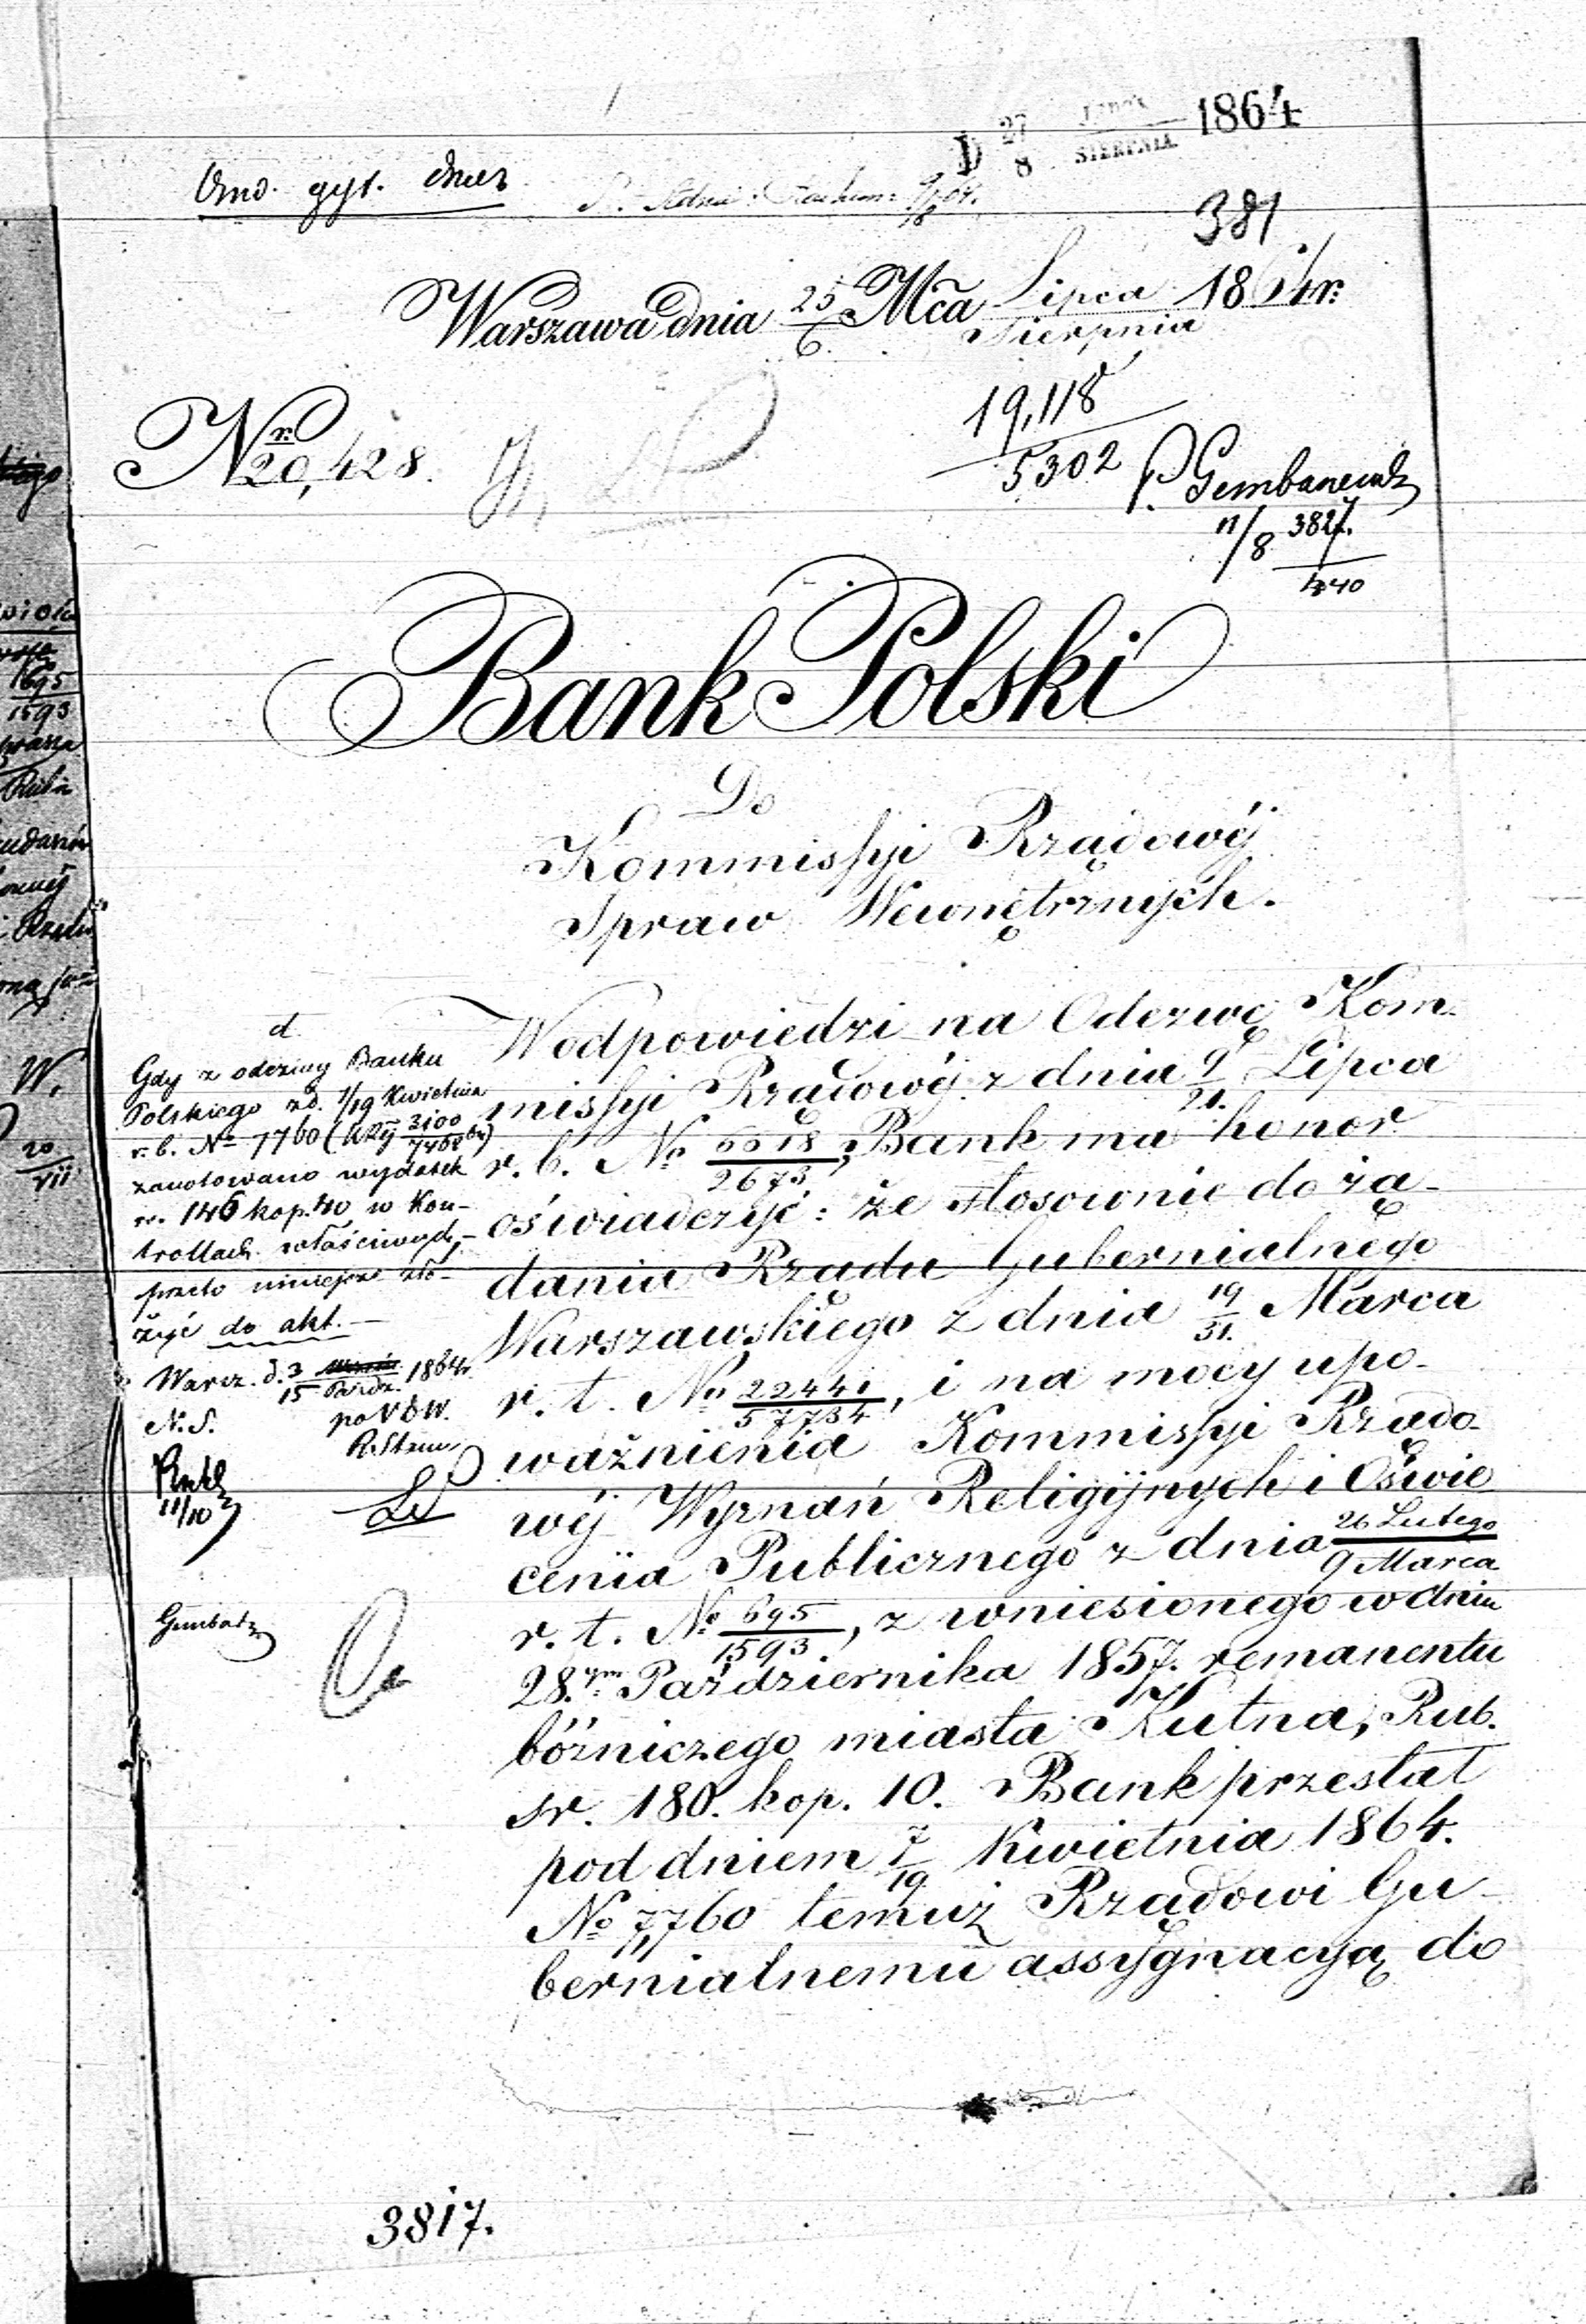 D 27/8 SIERPNIA 1864
381
Warszawa dnia 25/6 Mca Lipca/Sierpnia 1864 r.
19,118
5302
Nr 20,428.
11/8 3827.
440
Bank Polski
Do
Kommissyi Rządowéj
Spraw Wewnętrznych.
W odpowiedzi na Odezwę Kom-
missyi Rządowéj z dnia 9/21. Lipca
r. b. No 6618/2673, Bank ma honor
oświadczyć: że stosownie do żą-
dania Rządu Gubernialnego
Warszawskiego z dnia 19/31. Marca
r. t. No 22441/57734, i na mocy upo-
ważnienia Kommissyi Rządo-
wéj Wyznań Religijnych i Oświe
cenia Publicznego z dnia 26 Lutego/9 Marca
r. t. No 695/1593, z wniesionego w dniu
28.ym Października 1857. remanentu
bóżniczego miasta Kutna, Rub.
sr. 180. kop. 10. Bank przesłał
pod dniem 7/19 Kwietnia 1864.
No 7,760 temuż Rządowi Gu-
bernialnemu assygnacyą do
d.
Gdy z odezwy Banku
Polskiego z d. 7/19 Kwietnia
r. b. No 7760 (3100/7462)
zanotowano wydatek
rs. 146 kop. 40 w Kon-
trollach właściwych,
przeto niniejsze zło-
żyć do akt.
Warsz. d. 3/15 Paźdz. 1864 r.
N. S.
11/10
3817.
W.
20/VII
695
1593